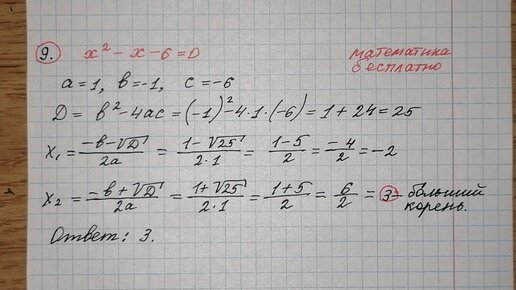 9. x² - x - 6 = 0
математика
бесплатно
a = 1, b = -1, c = -6
D = b² - 4ac = (-1)² - 4·1·(-6) = 1 + 24 = 25
x₁ = (-b - √D)/2a = (1 - √25)/2·1 = (1 - 5)/2 = -4/2 = -2
x₂ = (-b + √D)/2a = (1 + √25)/2·1 = (1 + 5)/2 = 6/2 = 3 - больший
корень.
Ответ: 3.